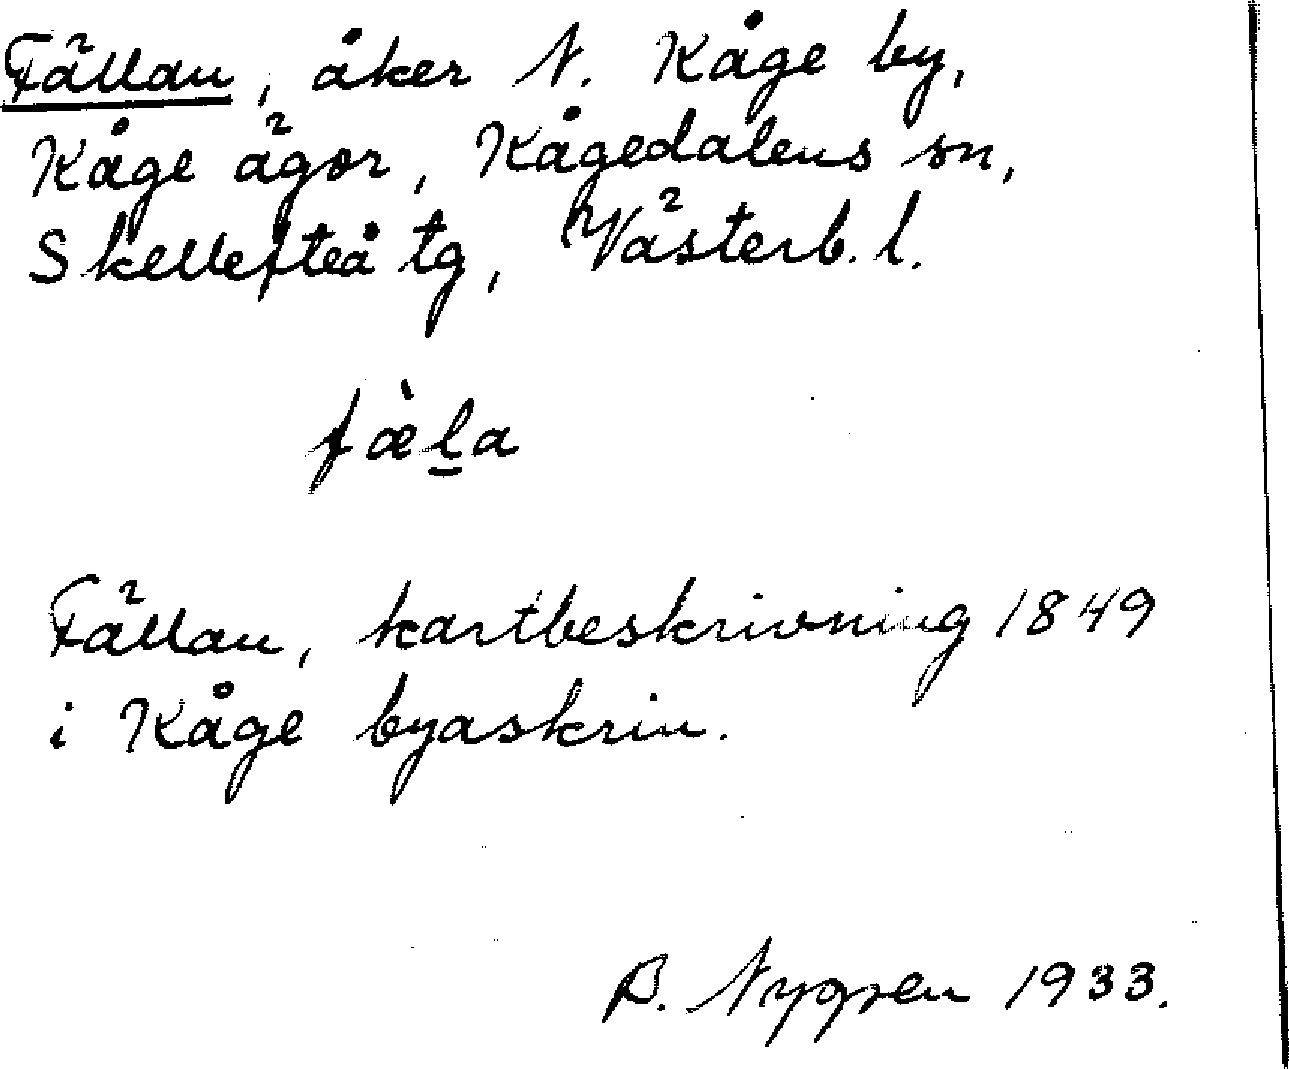 Fällan, åker N. Kåge by,
Kåge ägor, Kågedalens sn,
Skellefteå tg, Västerb. l.
fæ̀l̠a
Fällan, kartbeskrivning 1849
i Kåge byaskrin.
B. Nygren 1933.